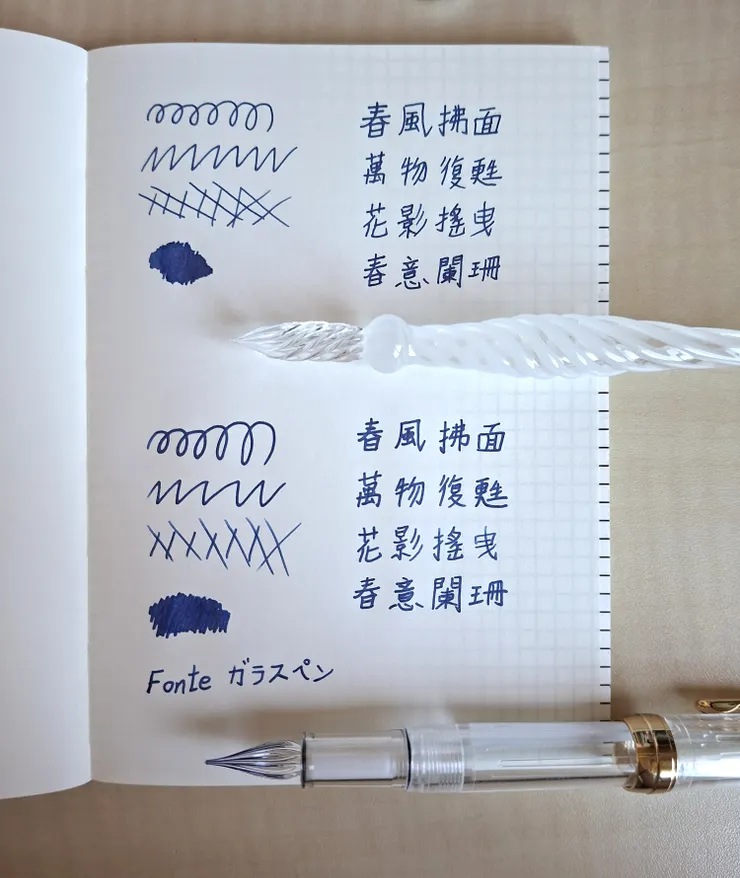 春風拂面
萬物復甦
花影搖曳
春意闌珊
春風拂面
萬物復甦
花影搖曳
春意闌珊
Fonte ガラスペン